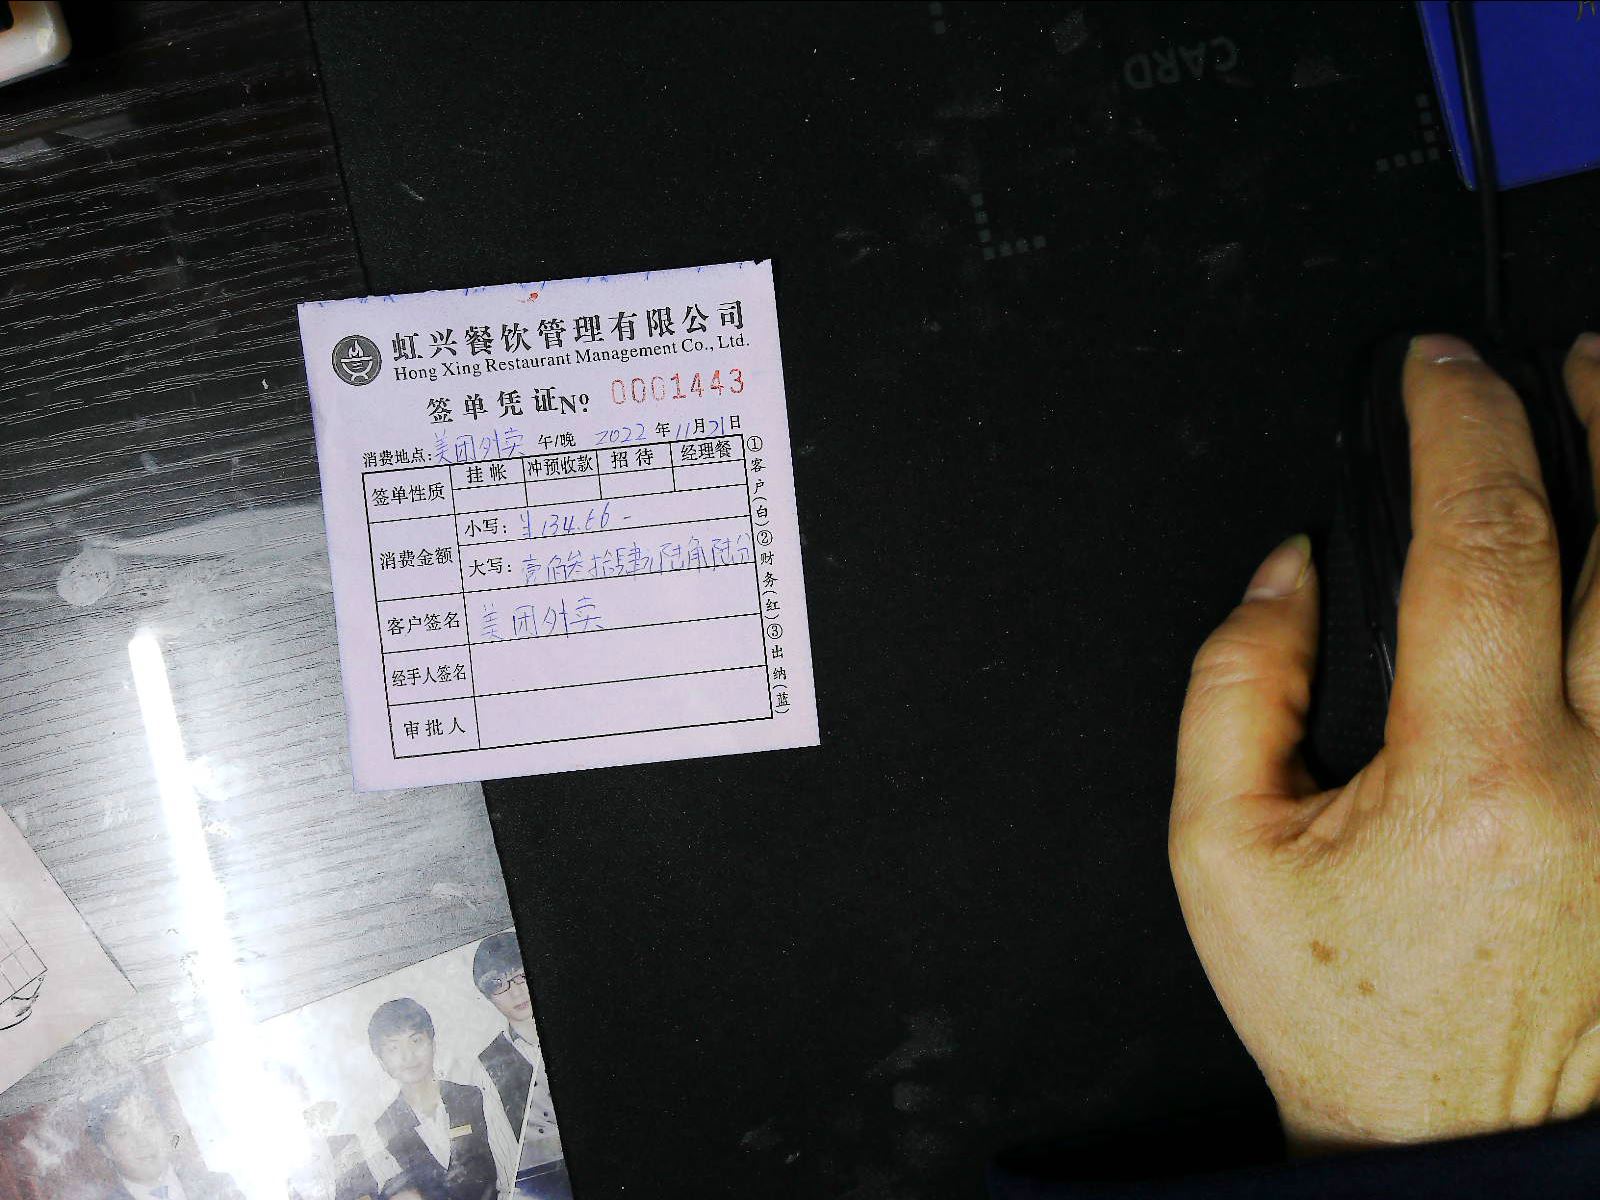 CARD
虹兴餐饮管理有限公司
Hong Xing Restaurant Management Co., Ltd.
签单凭证No. 0001443
消费地点:美团外卖 午/晚 2022年11月21日
签单性质 挂帐 冲预收款 招待 经理餐
消费金额 小写:¥134.66-
大写:壹佰叁拾肆元陆角陆分
客户签名 美团外卖
经手人签名
审批人
①客户(白)②财务(红)③出纳(蓝)